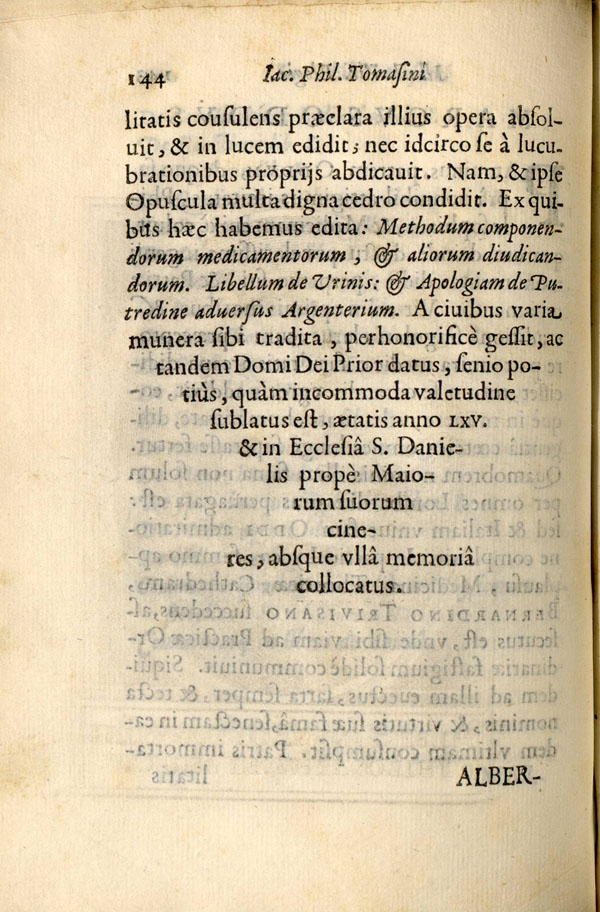 144 Iac. Phil. Tomaſini
litatis couſulens præclara illius opera abſol-
uit, & in lucem edidit; nec idcirco ſe à lucu-
brationibus proprijs abdicauit. Nam, & ipſe
Opuſcula multa digna cedro condidit. Ex qui-
bus hæc habemus edita: Methodum componen-
dorum medicamentorum, & aliorum diudican-
dorum. Libellum de Vrinis: & Apologiam de Pu-
tredine aduerſus Argenterium. A ciuibus varia
munera ſibi tradita, perhonorificè geſſit, ac
tandem Domi Dei Prior datus, ſenio po-
tiùs, quàm incommoda valetudine
ſublatus eſt, ætatis anno LXV.
& in Eccleſiâ S. Danie-
lis propè Maio-
rum ſuorum
cine-
res, abſque vllâ memoriâ
collocatus.
ALBER-